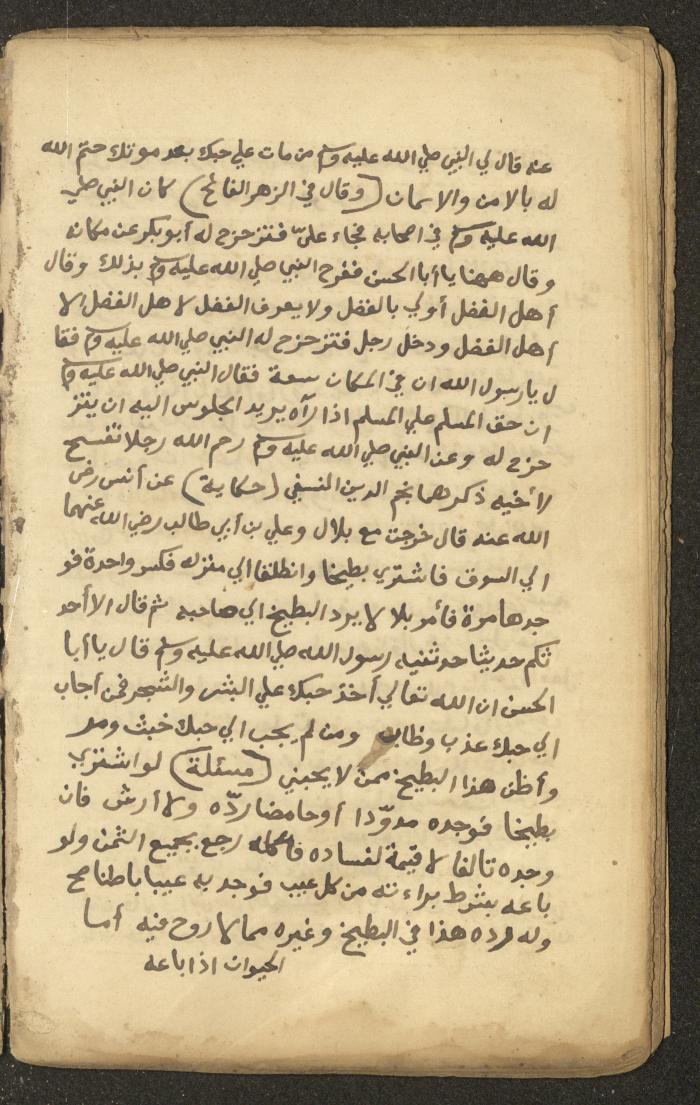 عنه قال لي النبي صلي الله عليه وسلم من مات علي حبك بعد موتك ختم الله
له بالامن والايمان (وقال في الزهر الفائح) كان النبي صلي
الله عليه وسلم في اصحابه فجاء علىّ فتزحزح له أبو بكر عن مكانه
وقال ههنا يا أبا الحسن ففرح النبي صلي الله عليه وسلم بذلك وقال
أهل الفضل أولي بالفضل ولا يعرف الفضل لاهل الفضل إلا
أهل الفضل ودخل رجل فتزحزح له النبي صلي الله عليه وسلم فقا
ل يا رسول الله ان في المكان سعة فقال النبي صلي الله عليه وسلم
ان حق المسلم علي المسلم اذا رآه يريد الجلوس اليه ان يتز
حزح له وعن النبي صلي الله عليه وسلم رحم الله رجلا تفسح
لأخيه ذكرهما نجم الدين النسفي (حكاية) عن أنس رضى
الله عنه قال خرجت مع بلال وعلي بن أبي طالب رضي الله عنهما
الي السوق فاشتري بطيخا وانطلقا الي منزله فكسر واحدة فو
جدها مرة فأمر بلالا يرد البطيخ الي صاحبه ثم قال الا أحد
ثكم حديثا حدثنيه رسول الله صلي الله عليه وسلم قال يا أبا
الحسن ان الله تعالي أخذ حبك علي البشر والشجر فمن أجاب
الي حبك عذب وطاب ومن لم يجب الي حبك خبث ومر
وأظن هذا البطيخ ممن لا يحبني (مسئلة) لو اشتري
بطيخا فوجده مدوّدا أو حامضا ردّه ولا أرش فان
وجده تالفا لا قيمة لفساده فاكمله رجع بجميع الثمن ولو
باعه بشرط براءته من كل عيب فوجد به عيبا باطنا صح
وله رده هذا في البطيخ وغيره مما لا روح فيه أما
الحيوان اذا باعه